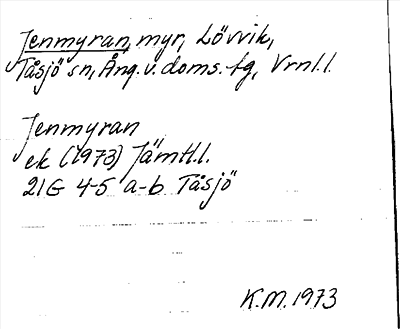 Jenmyran, myr, Lövvik,
Tåsjö sn, Ång. v. doms. tg, Vrnl.l.
Jenmyran
ek (1973) Jämtl.l.
21G 4-5 a-b Tåsjö
K.M. 1973